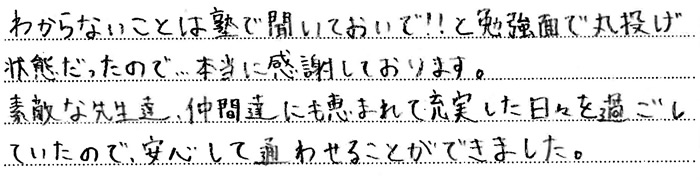 わからないことは塾で聞いておいで!!と勉強面で丸投げ
状態だったので…本当に感謝しております。
素敵な先生達、仲間達にも恵まれて充実した日々を過ごし
ていたので、安心して通わせることができました。